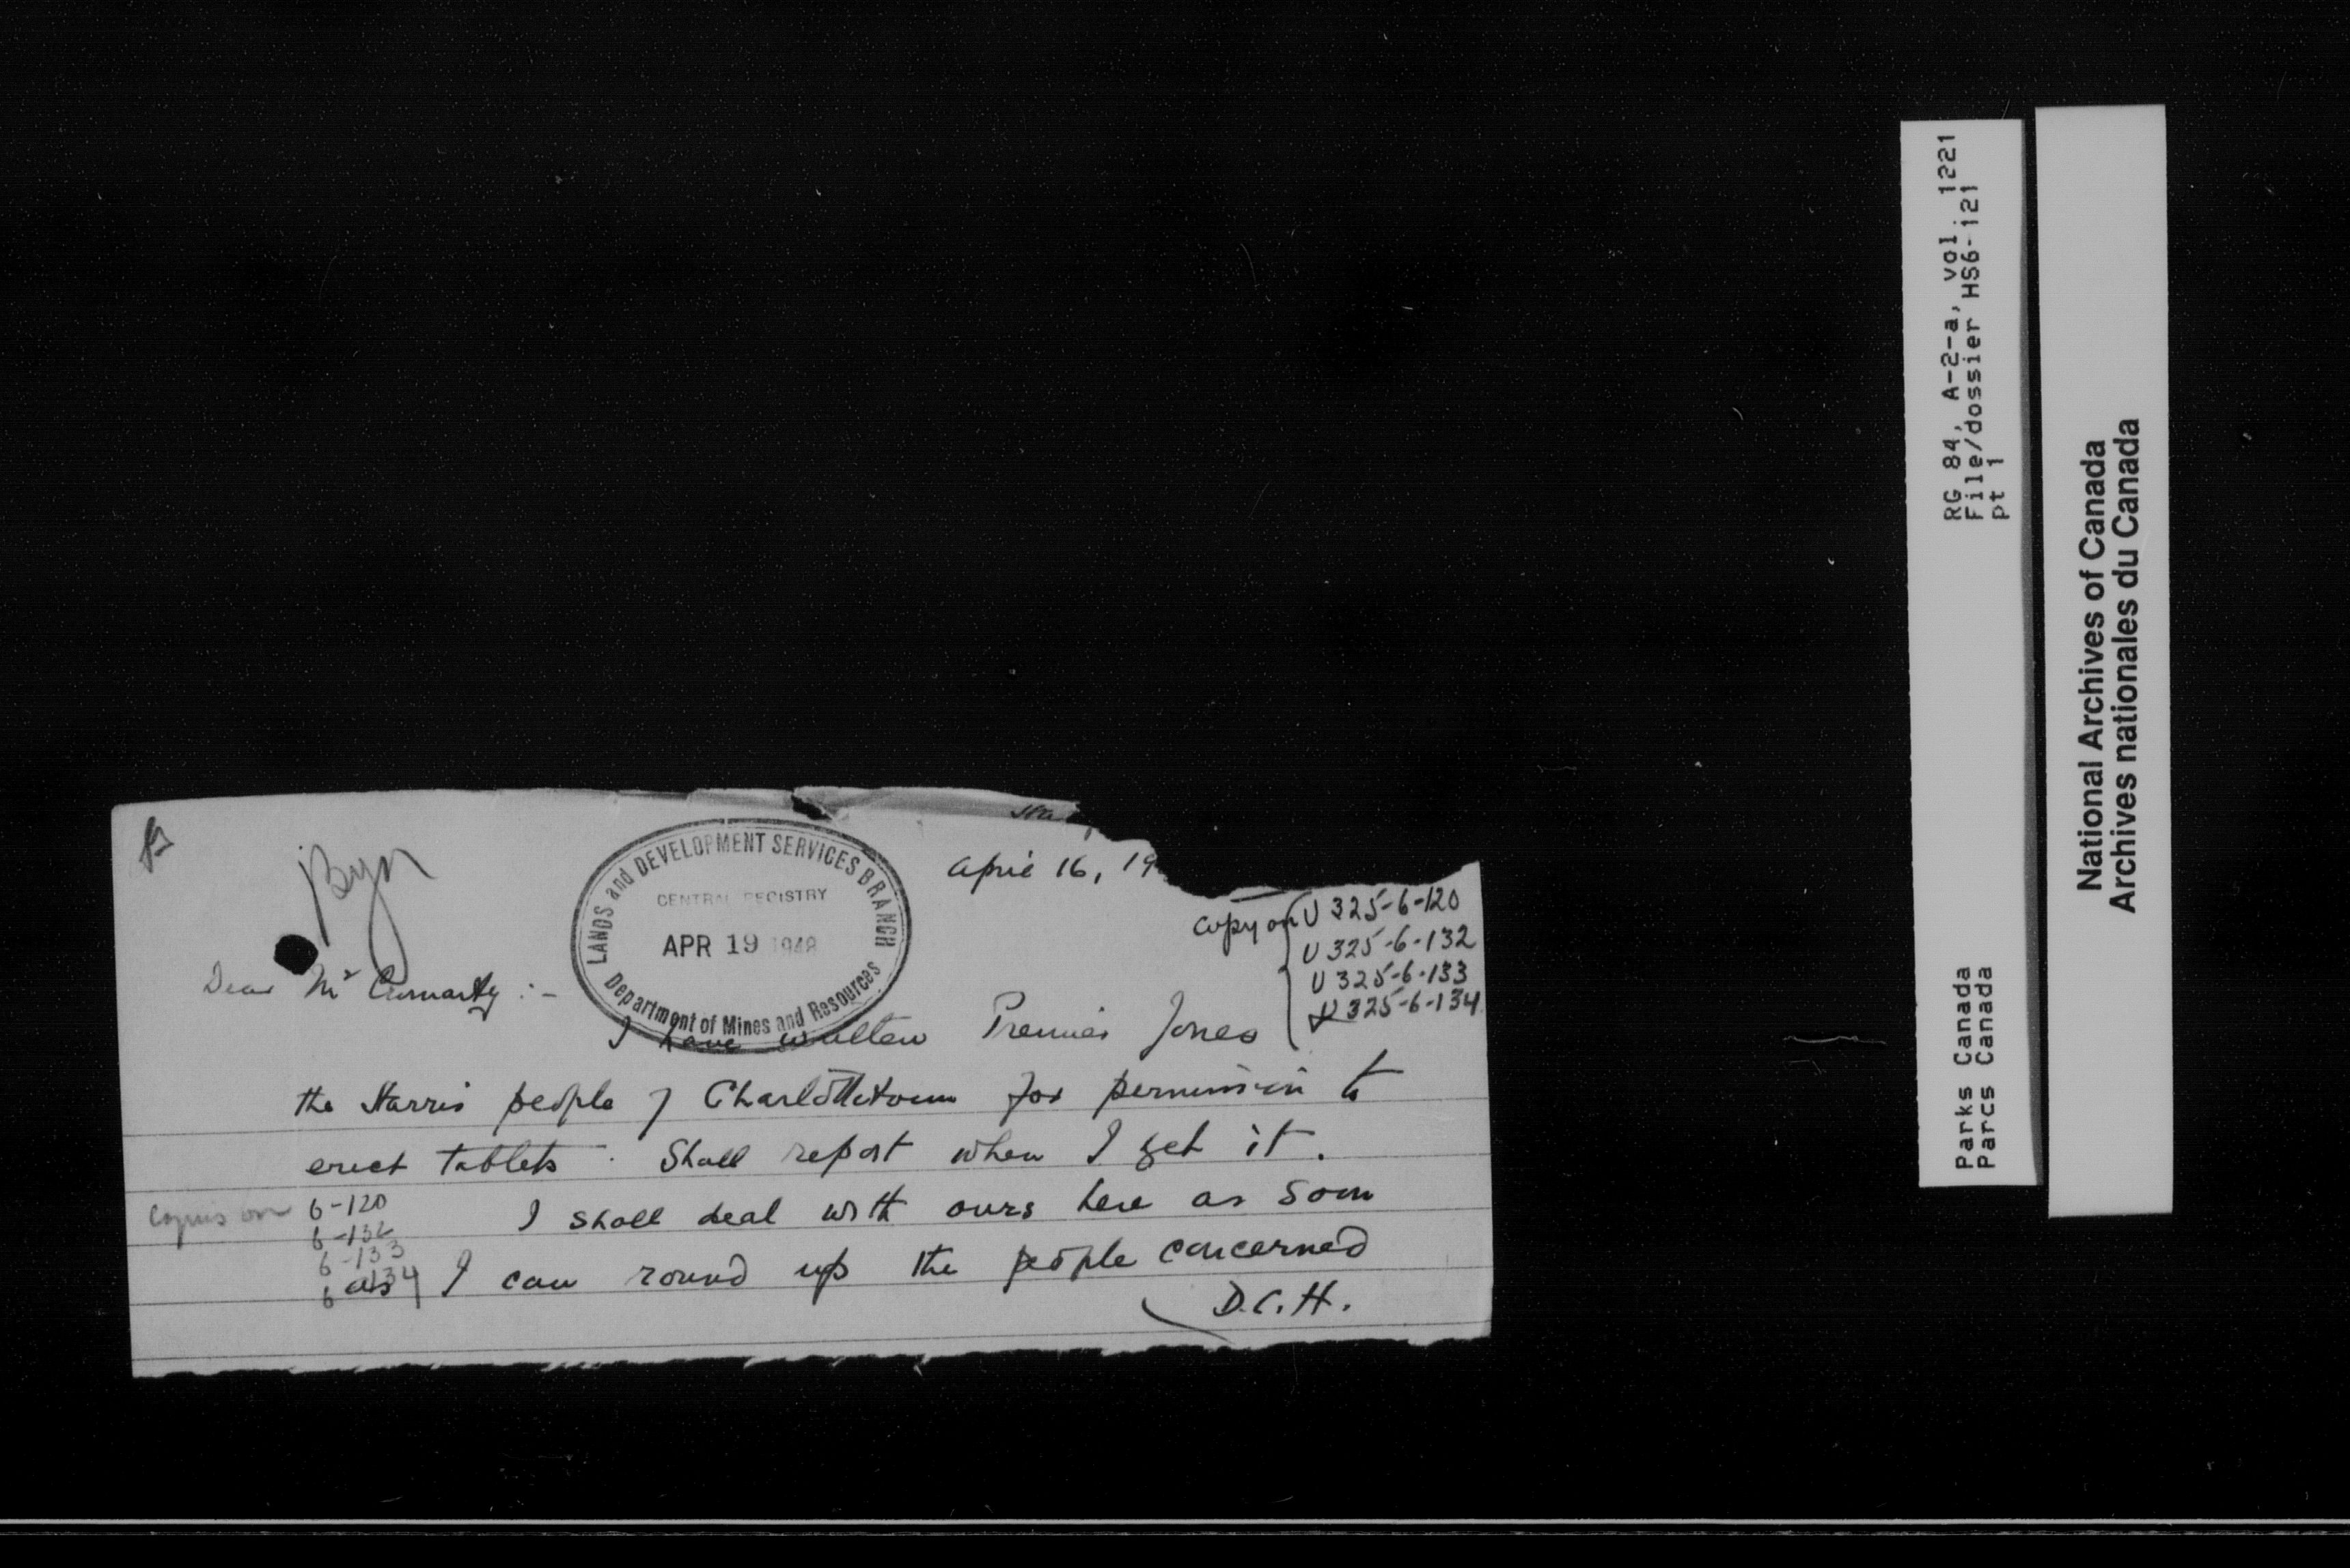 April 16, 19
LANDS and DEVELOPMENT SERVICES BRANCH
CENTRAL REGISTRY
APR 19 1948
Department of Mines and Resources
copy on U 325-6-120
U 325-6-132
U 325-6-133
U 325-6-134
Dear Mr Cromarty :-
I have written Premier Jones
the Harris people of Charlottetown for permission to
erect tablets. Shall report when I get it.
Copies on 6-120
6-132
6-133
6-134
I shall deal with ours here as soon
as I can round up the people concerned
D.C.H.
RG 84, A-2-a, vol. 1221
File/dossier HS6-121
pt 1
Parks Canada
Parcs Canada
National Archives of Canada
Archives nationales du Canada